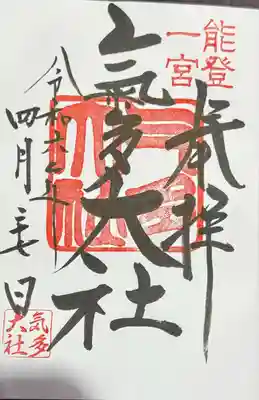 能登
一宮
奉拝
氣多大社
令和六年
四月 日
気多
大社